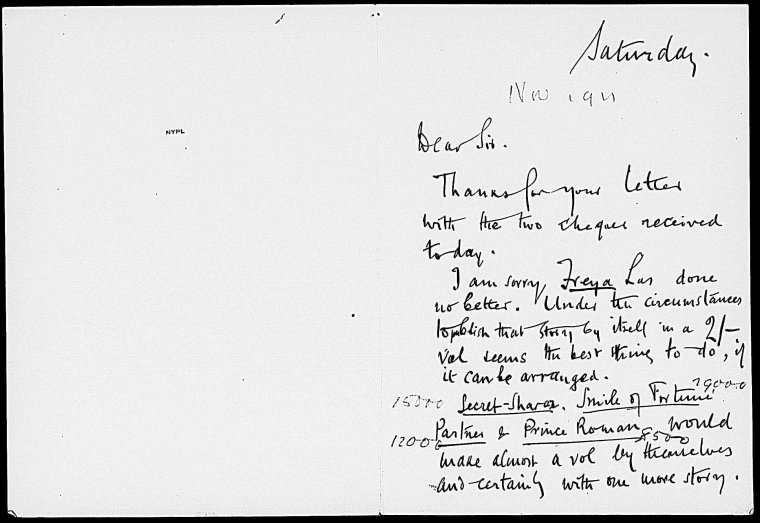 NYPL
Saturday.
Nov 1911
Dear Sir.
Thanks for your letter
with the two cheques received
to-day.
I am sorry Freya has done
no better. Under the circumstances
to publish that story by itself in a 2/-
vol seems the best thing to do, if
it can be arranged.
15000 Secret-Sharer. Smile of Fortune 29000
12000 Partner & Prince Roman 8500 would
make almost a vol by themselves
and certainly with one more story.